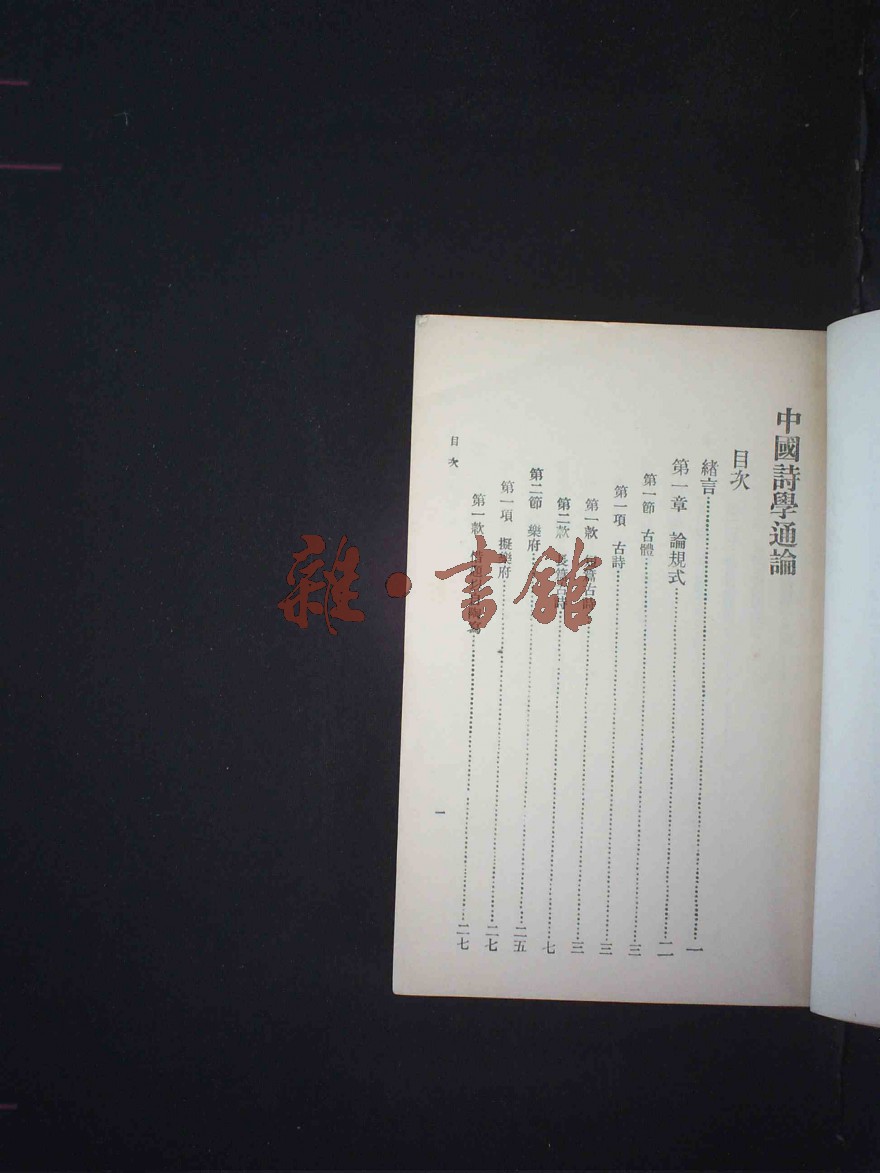 中國詩學通論
目次
緒言……一
第一章 論規式……二
第一節 古體……三
第一項 古詩……三
第一款 短篇古詩……三
第二款 長篇古詩……七
第二節 樂府……二五
第一項 擬樂府……二七
第一款……二七
目次
一
雜·書館